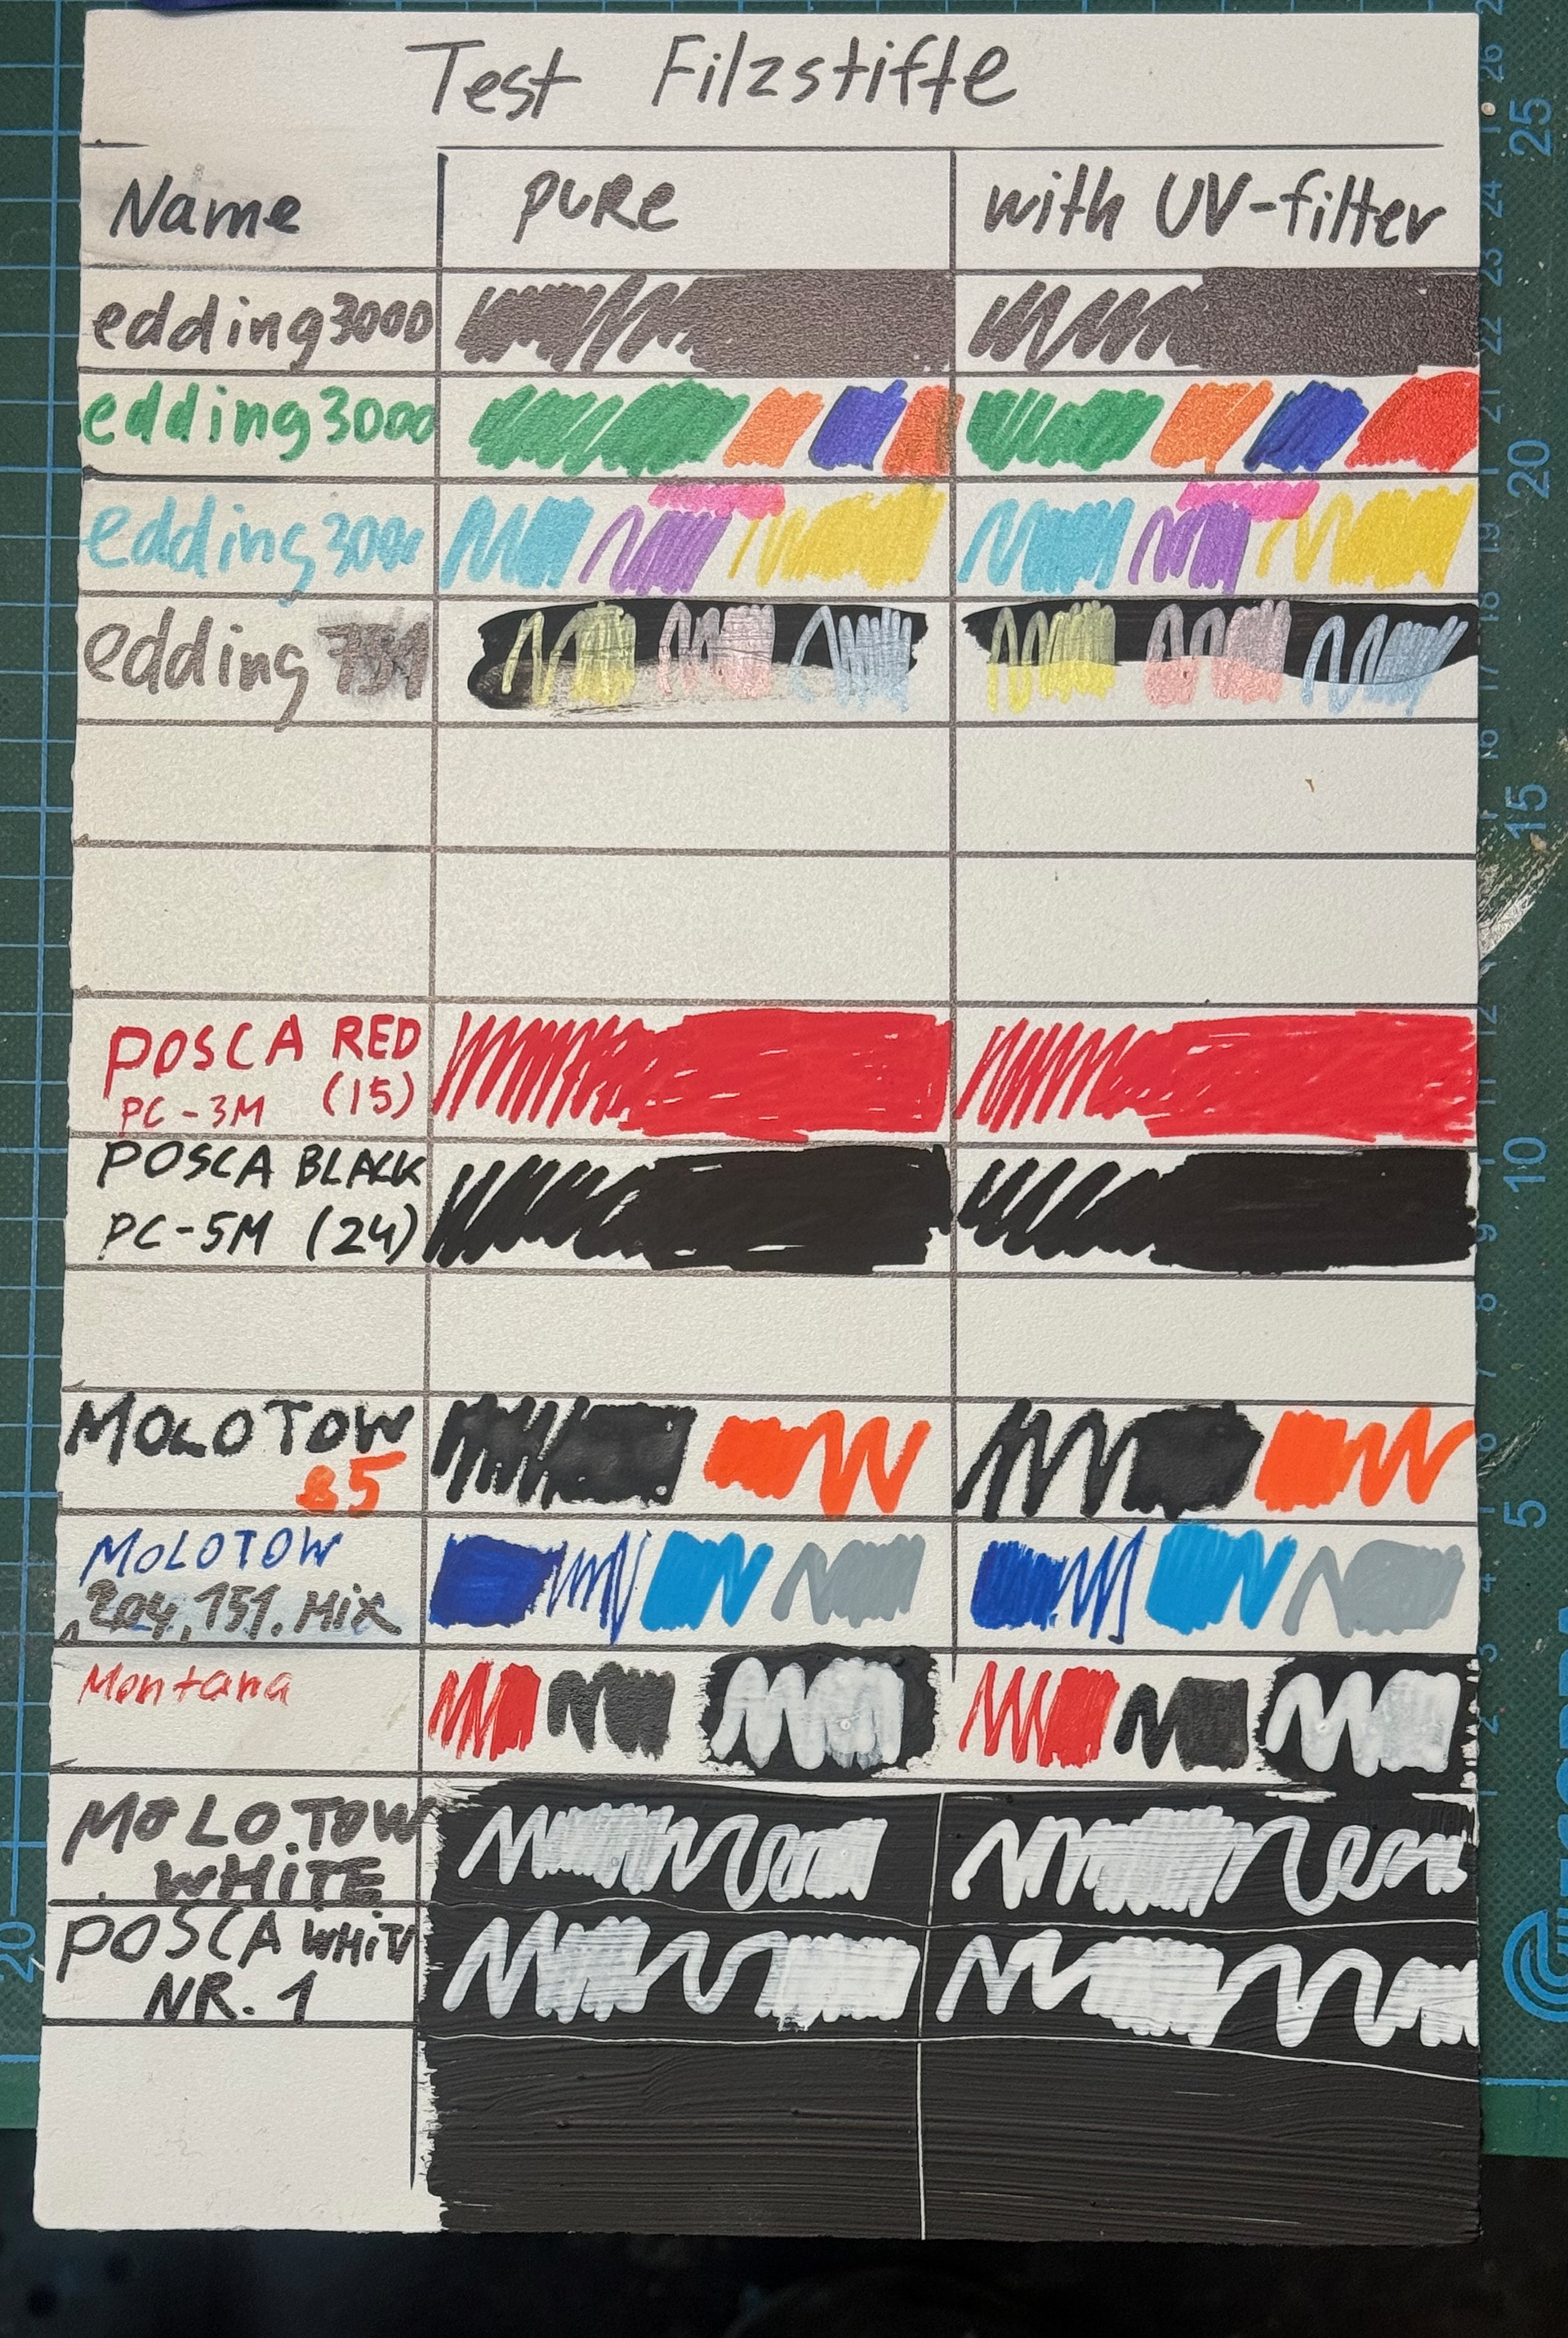 Test Filzstifte
Name pure with UV-filter
edding 3000
edding 3000
edding 3000
edding 751
POSCA RED
PC-3M (15)
POSCA BLACK
PC-5M (24)
MOLOTOW
85
MOLOTOW
204, 151. Mix
Montana
MOLOTOW
WHITE
POSCA WHITE
NR. 1
26
25
24
23
22
21
20
19
18
17
16
15
12
11
10
9
8
7
6
5
4
3
2
1
20